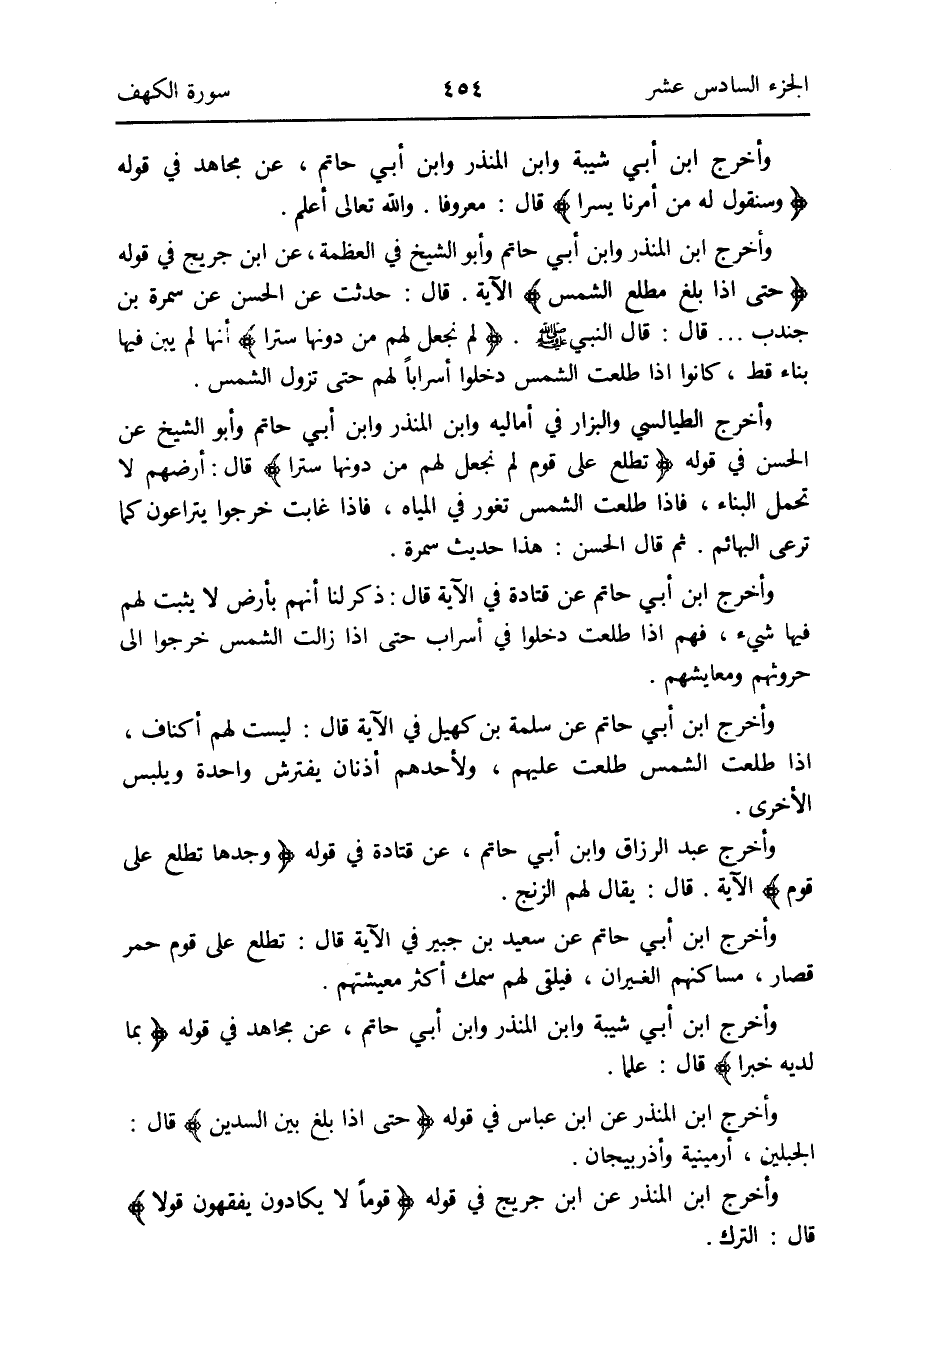 الجزء السادس عشر ٤٥٤ سورة الكهف
وأخرج ابن أبي شيبة وابن المنذر وابن أبي حاتم ، عن مجاهد في قوله
﴿ وسنقول له من أمرنا يسرا ﴾ قال : معروفا . والله تعالى أعلم .
وأخرج ابن المنذر وابن أبي حاتم وأبو الشيخ في العظمة ، عن ابن جريج في قوله
﴿ حتى اذا بلغ مطلع الشمس ﴾ الآية . قال : حدثت عن الحسن عن سمرة بن
جندب ... قال : قال النبي ﷺ . ﴿ لم نجعل لهم من دونها سترا ﴾ أنها لم يبن فيها
بناء قط ، كانوا اذا طلعت الشمس دخلوا أسراباً لهم حتى تزول الشمس .
وأخرج الطيالسي والبزار في أماليه وابن المنذر وابن أبي حاتم وأبو الشيخ عن
الحسن في قوله ﴿ تطلع على قوم لم نجعل لهم من دونها سترا ﴾ قال : أرضهم لا
تحمل البناء ، فاذا طلعت الشمس تغور في المياه ، فاذا غابت خرجوا يتراعون كما
ترعى البهائم . ثم قال الحسن : هذا حديث سمرة .
وأخرج ابن أبي حاتم عن قتادة في الآية قال : ذكر لنا أنهم بأرض لا يثبت لهم
فيها شيء ، فهم اذا طلعت دخلوا في أسراب حتى اذا زالت الشمس خرجوا الى
حروثهم ومعايشهم .
وأخرج ابن أبي حاتم عن سلمة بن كهيل في الآية قال : ليست لهم أكناف ،
اذا طلعت الشمس طلعت عليهم ، ولأحدهم أذنان يفترش واحدة ويلبس
الأخرى .
وأخرج عبد الرزاق وابن أبي حاتم ، عن قتادة في قوله ﴿ وجدها تطلع على
قوم ﴾ الآية . قال : يقال لهم الزنج .
وأخرج ابن أبي حاتم عن سعيد بن جبير في الآية قال : تطلع على قوم حمر
قصار ، مساكنهم الغيران ، فيلقى لهم سمك أكثر معيشتهم .
وأخرج ابن أبي شيبة وابن المنذر وابن أبي حاتم ، عن مجاهد في قوله ﴿ بما
لديه خبرا ﴾ قال : علما .
وأخرج ابن المنذر عن ابن عباس في قوله ﴿ حتى اذا بلغ بين السدين ﴾ قال :
الجبلين ، أرمينية وأذربيجان .
وأخرج ابن المنذر عن ابن جريج في قوله ﴿ قوماً لا يكادون يفقهون قولا ﴾
قال : الترك .